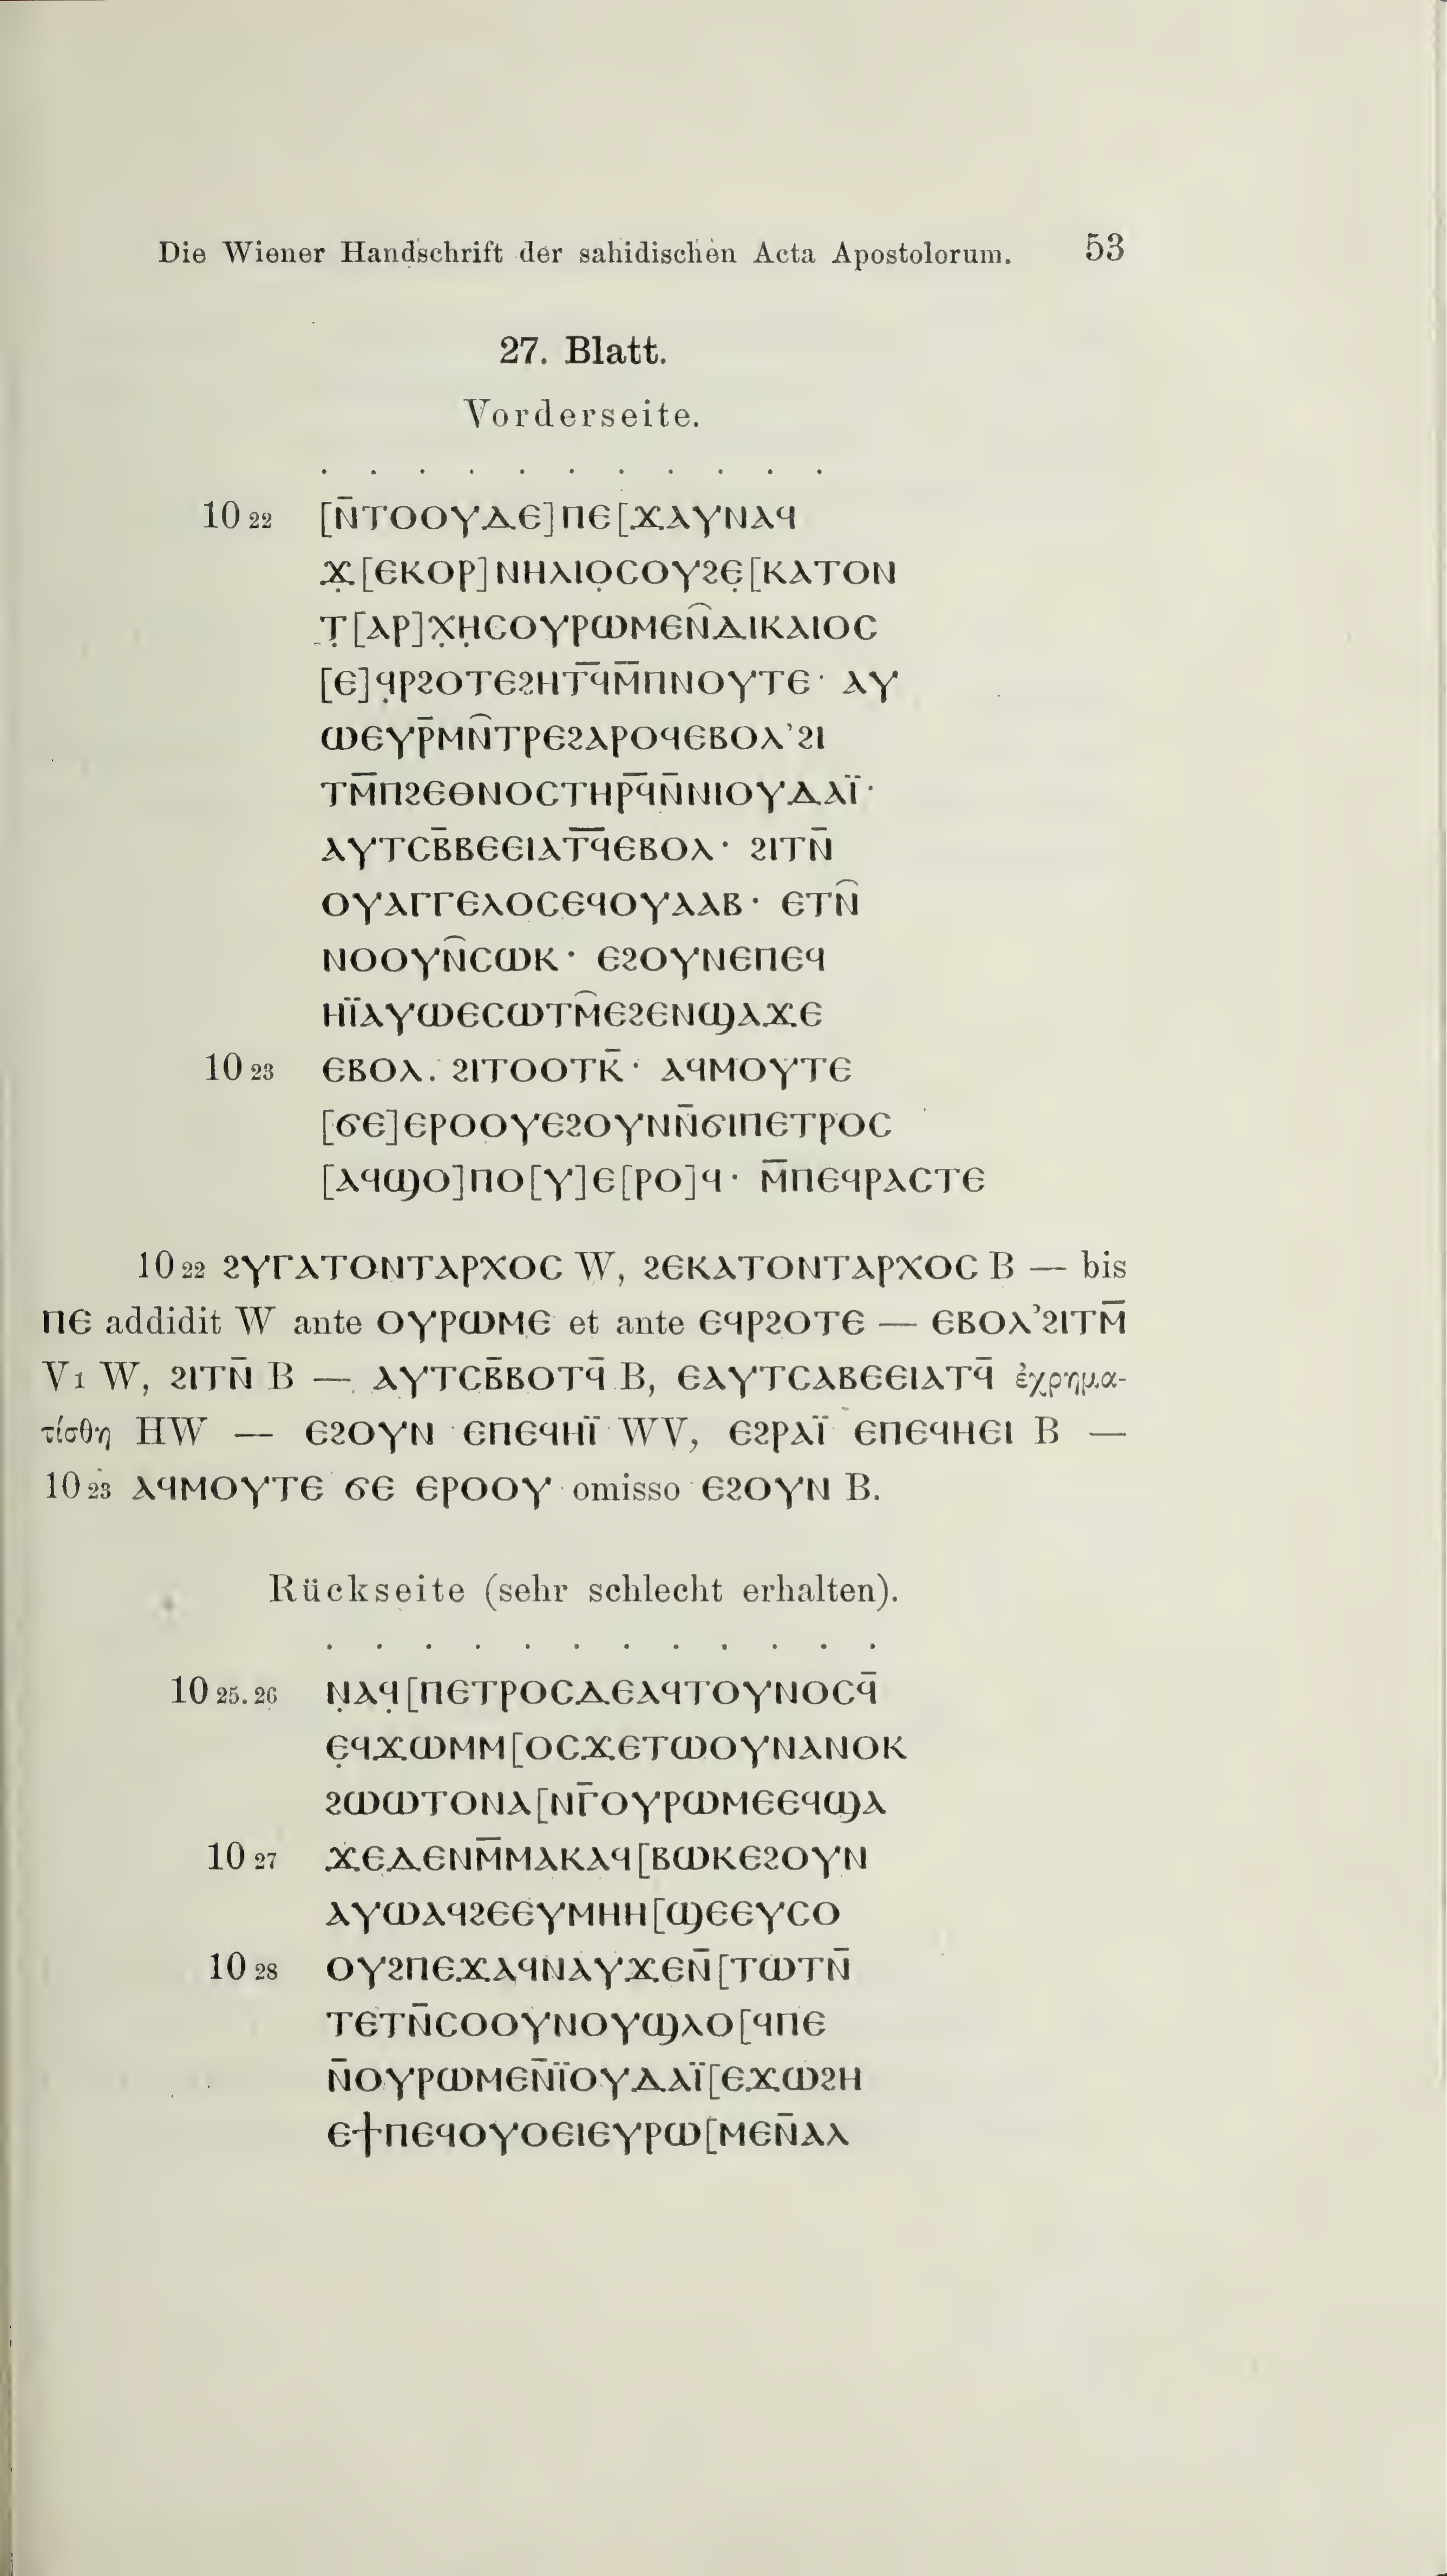 Die Wiener Handschrift der sahidischen Acta Apostolorum. 53
27. Blatt.
Vorderseite.
. . . . . . . . . . .
10 22 [ⲛ̄ⲧⲟⲟⲩⲇⲉ]ⲡⲉ[ϫⲁⲩⲛⲁϥ
ϫ̣[ⲉⲕⲟⲣ]ⲛⲏⲗⲓⲟ̣ⲥⲟⲩϩⲉ̣[ⲕⲁⲧⲟⲛ
ⲧ̣[ⲁⲣ]ⲭ̣ⲏ̣ⲥⲟⲩⲣⲱⲙⲉⲛ̑ⲇⲓⲕⲁⲓⲟⲥ
[ⲉ]ϥ̣ⲣϩⲟⲧⲉϩⲏⲧ̅ϥ̅ⲙ̄ⲡⲛⲟⲩⲧⲉ· ⲁⲩ
ⲱⲉⲩⲣ̄ⲙⲛ̑ⲧⲣⲉϩⲁⲣⲟϥⲉⲃⲟⲗ’ϩⲓ
ⲧⲙ̄ⲡϩⲉⲑⲛⲟⲥⲧⲏⲣ̅ϥ̅ⲛ̄ⲛⲓⲟⲩⲇⲁⲓ̈·
ⲁⲩⲧⲥⲃ̄ⲃⲉⲉⲓⲁⲧ̅ϥ̅ⲉⲃⲟⲗ· ϩⲓⲧⲛ̄
ⲟⲩⲁⲅⲅⲉⲗⲟⲥⲉϥⲟⲩⲁⲁⲃ· ⲉⲧⲛ̑
ⲛⲟⲟⲩⲛ̑ⲥⲱⲕ· ⲉϩⲟⲩⲛⲉⲡⲉϥ
ⲏⲓ̈ⲁⲩⲱⲉⲥⲱⲧⲙ̑ⲉϩⲉⲛϣⲁϫⲉ
10 23 ⲉⲃⲟⲗ. ϩⲓⲧⲟⲟⲧⲕ̄· ⲁϥⲙⲟⲩⲧⲉ
[ϭⲉ]ⲉⲣⲟⲟⲩⲉϩⲟⲩⲛⲛ̄ϭⲓⲡⲉⲧⲣⲟⲥ
[ⲁϥϣⲟ]ⲡⲟ[ⲩ]ⲉ[ⲣⲟ]ϥ· ⲙ̄ⲡⲉϥⲣⲁⲥⲧⲉ
10 22 ϩⲩⲅⲁⲧⲟⲛⲧⲁⲣⲭⲟⲥ W, ϩⲉⲕⲁⲧⲟⲛⲧⲁⲣⲭⲟⲥ B — bis
ⲡⲉ addidit W ante ⲟⲩⲣⲱⲙⲉ et ante ⲉϥⲣϩⲟⲧⲉ — ⲉⲃⲟⲗ’ϩⲓⲧⲙ̄
V1 W, ϩⲓⲧⲛ̄ B — ⲁⲩⲧⲥⲃ̄ⲃⲟⲧϥ̄ B, ⲉⲁⲩⲧⲥⲁⲃⲉⲉⲓⲁⲧϥ̄ ἐχρημα-
τίσθη HW — ⲉϩⲟⲩⲛ ⲉⲡⲉϥⲏⲓ̈ WV, ⲉϩⲣⲁⲓ̈ ⲉⲡⲉϥⲏⲉⲓ B —
10 23 ⲁϥⲙⲟⲩⲧⲉ ϭⲉ ⲉⲣⲟⲟⲩ omisso ⲉϩⲟⲩⲛ B.
Rückseite (sehr schlecht erhalten).
. . . . . . . . . . . .
10 25. 26 ⲛ̣ⲁϥ̣[ⲡⲉⲧⲣⲟⲥⲇⲉⲁϥⲧⲟⲩⲛⲟⲥϥ̄
ⲉ̣ϥϫⲱⲙⲙ[ⲟⲥϫⲉⲧⲱⲟⲩⲛⲁⲛⲟⲕ
ϩⲱⲱⲧⲟⲛⲁ[ⲛⲅ̄ⲟⲩⲣⲱⲙⲉⲉϥϣⲁ
10 27 ϫⲉⲇⲉⲛⲙ̄ⲙⲁⲕⲁϥ[ⲃⲱⲕⲉϩⲟⲩⲛ
ⲁⲩⲱⲁϥϩⲉⲉⲩⲙⲏⲏ[ϣⲉⲉⲩⲥⲟ
10 28 ⲟⲩϩⲡⲉϫⲁϥⲛⲁⲩϫⲉⲛ̄[ⲧⲱⲧⲛ̄
ⲧⲉⲧⲛ̄ⲥⲟⲟⲩⲛⲟⲩϣⲗⲟ[ϥⲡⲉ
ⲛ̄ⲟⲩⲣⲱⲙⲉⲛ̄ⲓ̈ⲟⲩⲇⲁⲓ̈[ⲉϫⲱϩⲏ
ⲉϯⲡⲉϥⲟⲩⲟⲉⲓⲉⲩⲣⲱ[ⲙⲉⲛ̄ⲁⲗ